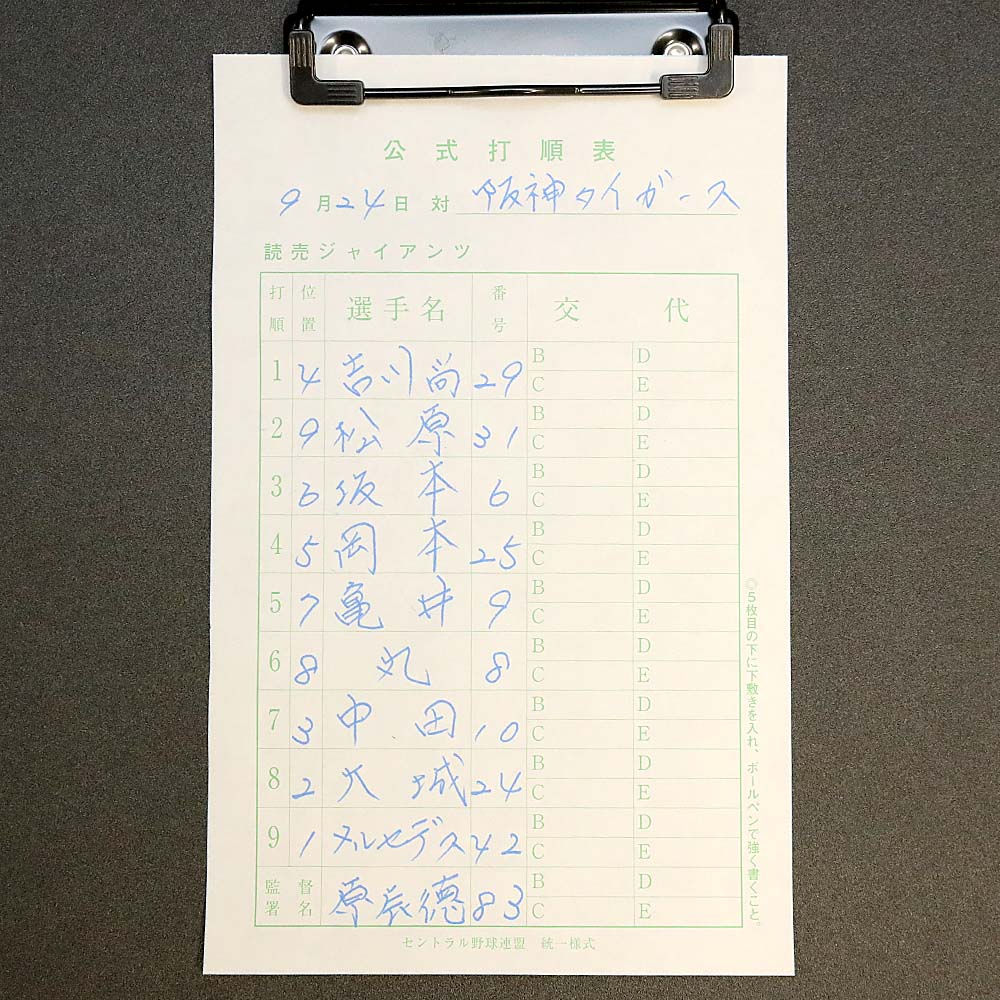 公式打順表
9月24日 対 阪神タイガース
読売ジャイアンツ
打順 位置 選手名 番号 交代
1 4 吉川尚 29 B D
C E
2 9 松原 31 B D
C E
3 6 坂本 6 B D
C E
4 5 岡本 25 B D
C E
5 7 亀井 9 B D
C E
6 8 丸 8 B D
C E
7 3 中田 10 B D
C E
8 2 大城 24 B D
C E
9 1 メルセデス 42 B D
C E
監督署名 原辰徳 83 B D
C E
セントラル野球連盟 統一様式
◎5枚目の下に下敷きを入れ、ボールペンで強く書くこと。